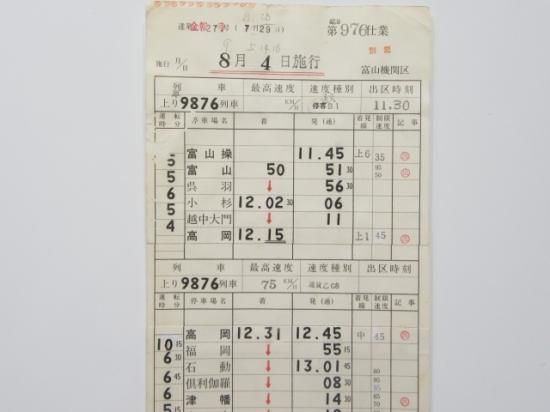 第976仕業
(7月29日)
8月4日施行
富山機関区
列車 最高速度 速度種別 出区時刻
上り9876列車 KM/H 停客B1 11.30
運転時分 停車場名 着 発(通) 着発線 制限速度 記事
富山操 11.45 上6 35
5 富山 50 51 30 95 50
5 呉羽 ↓ 56 30
6 小杉 12.02 30 06
5 越中大門 ↓ 11
4 高岡 12.15 上1 45
列車 最高速度 速度種別 出区時刻
上り9876列車 75 KM/H 通貨乙G8
運転時分 停車場名 着 発(通) 着発線 制限速度 記事
高岡 12.31 12.45 中 45
10 15 福岡 ↓ 55 15
6 30 石動 ↓ 13.01 45
6 45 倶利伽羅 ↓ 08 30
津幡 ↓ 14 30